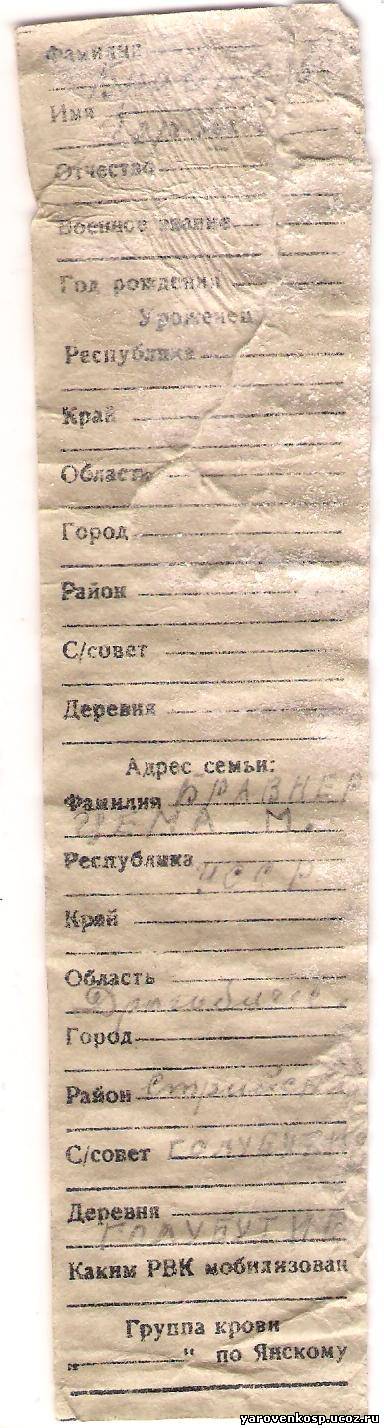 Фамилия
Имя
Отчество
Военное звание
Год рождения
Уроженец
Республика
Край
Область
Город
Район
С/совет
Деревня
Адрес семьи:
Фамилия БРАВНЕР
М.
Республика УССР
Край
Область
Город
Район Стрийский
С/совет
Деревня
Каким РВК мобилизован
Группа крови
„ “ по Янскому
yarovenkosp.ucoz.ru